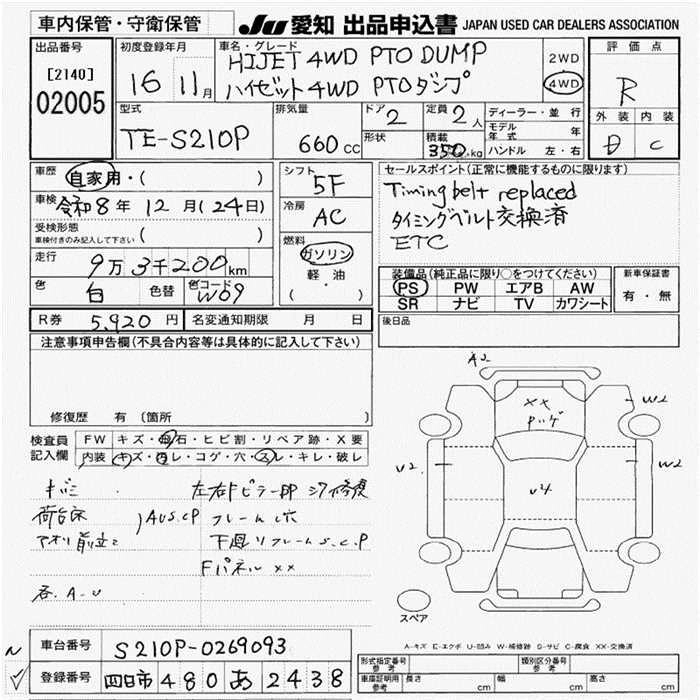 車内保管・守衛保管
JU 愛知 出品申込書 JAPAN USED CAR DEALERS ASSOCIATION
出品番号
[2140]
02005
初度登録年月
16 11月
車名・グレード
HIJET 4WD PTO DUMP
ハイゼット4WD PTOダンプ
2WD
4WD
評価点
R
外装 内装
D C
型式
TE-S210P
排気量
660 cc
ドア 2
形状
定員 2人
積載 350 kg
ディーラー・並行
モデル年式 年
ハンドル 左・右
車歴
自家用・( )
車検 令和8年 12月(24日)
受検形態
車検付きのみ記入して下さい ( )
走行
9万3千200km
色 白 色替 色コード W09
シフト
5F
冷房
AC
燃料
ガソリン
軽・油
( ・ )
セールスポイント(正常に機能するものに限ります)
Timing belt replaced
タイミングベルト交換済
ETC
装備品(純正品に限り○をつけてください)
PS PW エアB AW
SR ナビ TV カワシート
新車保証書
有・無
R券 5,920円 名変通知期限 月 日
後日品
注意事項申告欄(不具合内容等は具体的に記入して下さい)
修復歴 有 (箇所
検査員記入欄
FW キズ・飛石・ヒビ割・リペア跡・X要
内装 キズ・汚レ・コゲ・穴・スレ・キレ・破レ
キバミ
荷台床
アオリ 前立
AUS.CP
各 A-U
左右Fピラー部 シワ修復
フレーム
下廻りフレームS.C.P
Fパネル XX
A2
XX
W2
U2
W2
U4
スペア
A-キズ E-エクボ U-凹み W-補修跡 S-サビ C-腐食 XX-交換済
車台番号 S210P-0269093
登録番号 四日市 480 あ 2438
形式指定番号 参考
類別区分番号 参考
車庫証明用 参考 長さ cm 幅 cm 高さ cm